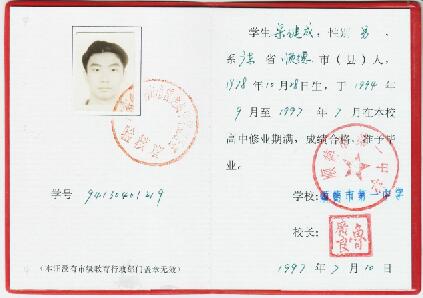 学号 9413040149
(本证没有市级教育行政部门盖章无效)
学生 梁健成，性别 男，
系 广东 省 顺德 市（县）人，
1978 年 10 月 28 日生，于 1994 年
9 月至 1997 年 7 月在本校
高中修业期满，成绩合格，准予毕
业。
学校: 市第一中学
校长:
1997 年 7 月 10 日